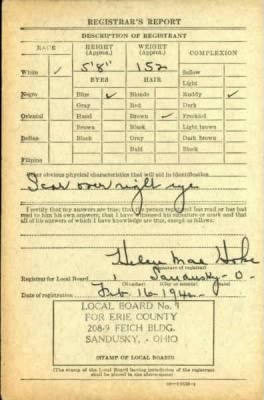 REGISTRAR'S REPORT
DESCRIPTION OF REGISTRANT
RACE HEIGHT (Approx.) WEIGHT (Approx.) COMPLEXION
5'8" 152
White ✓ Sallow
EYES HAIR Light
Negro Blue ✓ Blonde Ruddy ✓
Gray Red Dark
Oriental Hazel Brown ✓ Freckled
Brown Black Light brown
Indian Black Gray Dark brown
Bald Black
Filipino
Other obvious physical characteristics that will aid in identification
Scar over right eye
I certify that my answers are true; that the person registered has read or has had
read to him his own answers; that I have witnessed his signature or mark and that
all of his answers of which I have knowledge are true, except as follows:
Helen Mae Hoke
(Signature of registrar)
Registrar for Local Board 1 Sandusky - O -
(Number) (City or county) (State)
Date of registration Feb. 16 - 1942
LOCAL BOARD No. 1
FOR ERIE COUNTY
208-9 FEICH BLDG.
SANDUSKY, - OHIO
(STAMP OF LOCAL BOARD)
(The stamp of the Local Board having jurisdiction of the registrant
shall be placed in the above space.)